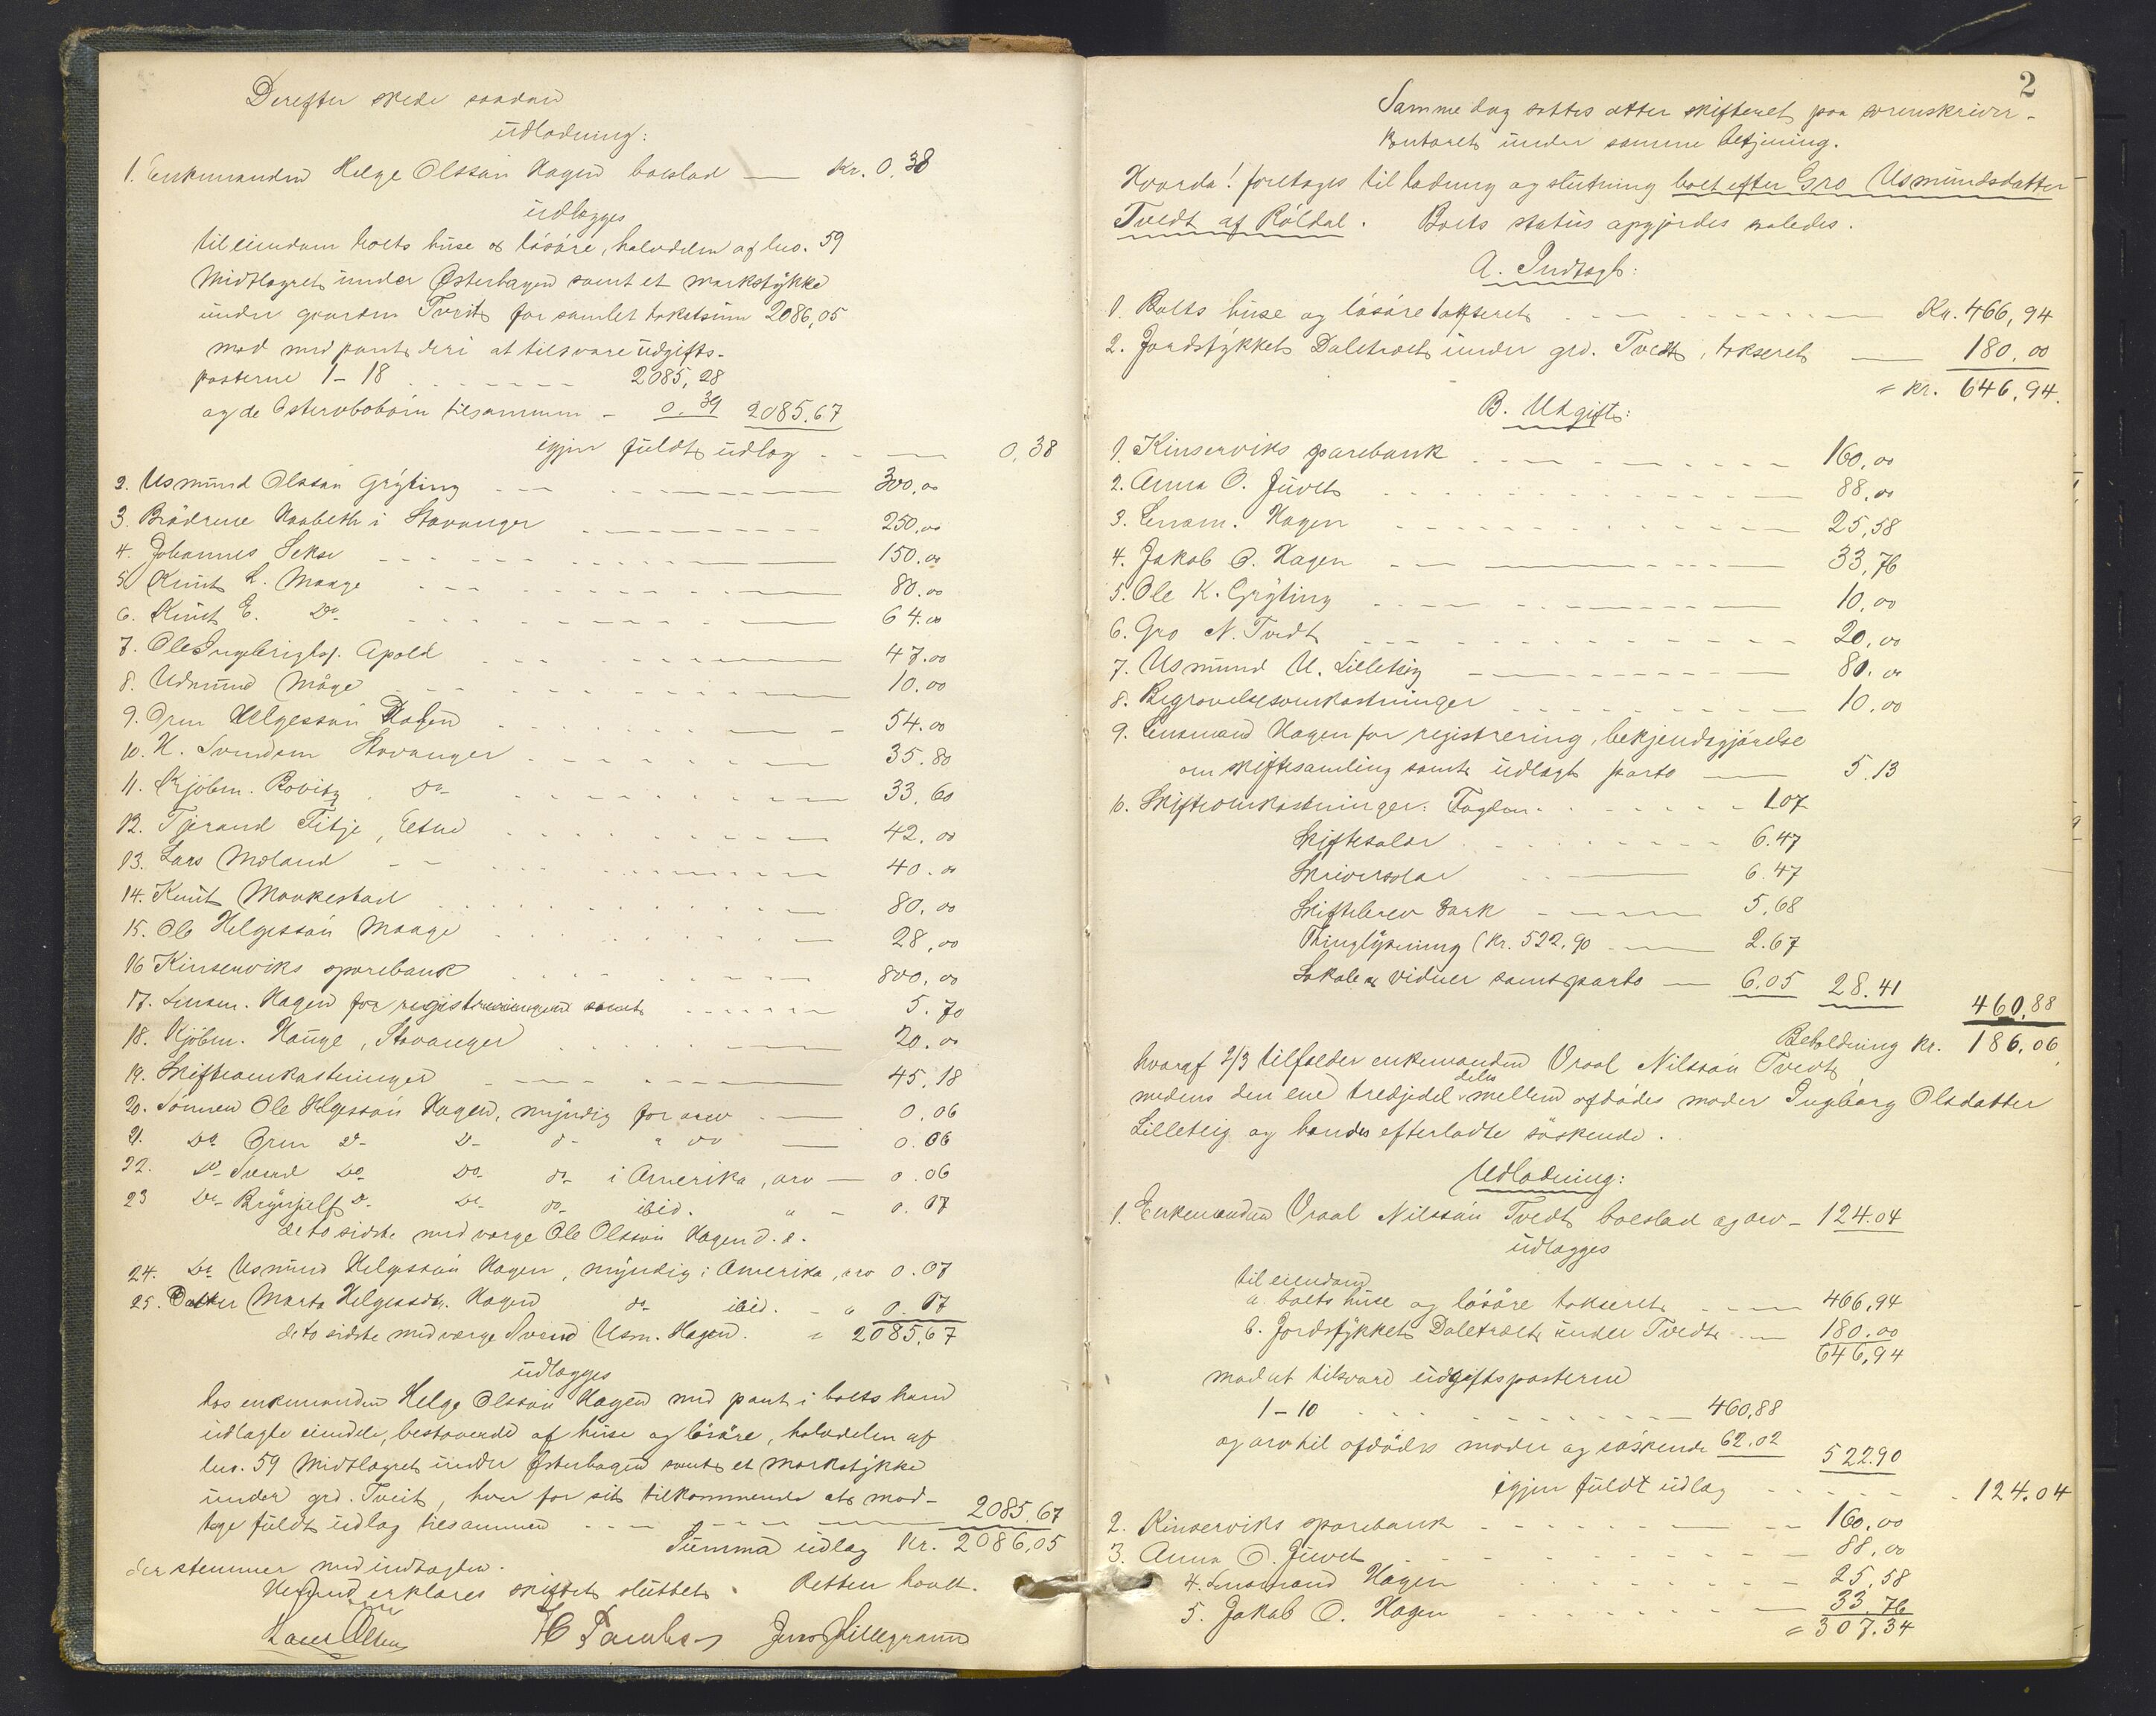 Derefter skede saadan
üdlodning:
1. Enkemanden Helge Olssøn Hagen boeslod — Kr. 0.38
üdlægges
til eiendom boets hüse & løsøre, halvdelen af lno. 59
Midtlagret under Østerhagen samt et markstÿkke
under gaarden Tveit for samlet takstsüm 2086,05
mod med pant deri at tilsvare üdgifts-
posterne 1-18 2085,28
og de tilsammen - 0.39 2085.67
igjen füldt üdlog 0,38
2. Asmünd Olssøn Grÿting 300,00
3. Brødrene Haabeth i Stavanger 250.00
4. Johannes Sekse 150.00
5 Knüt L. Maage 80.00
6. Knüt E. Do 64.00
7. Ole Ingebrigts. Apold 47.00
8. Udmünd Måge 10.00
9. Orm Helgessøn Hagen 54.00
10. H. Svendsen Stavanger 35.80
11. Kjøbm. Rovitz. Do 33,60
12. Tjerand Fitje, Etne 42.00
13. Lars Moland 40.00
14. Knüt Mankestad 80.00
15. Ole Helgessøn Maage 28,00
16 Kinserviks sparebank 800.00
17. Lensm. Hagen for registreringen samt 5.70
18. Kjøbm. Hauge, Stavanger 20.00
19. Skifteomkostninger 45,18
20. Sønnen Ole Helgessøn Hagen, mÿndig for arv 0.06
21. Do Orm Do Do do " do 0.06
22. Do Svend Do Do do i Amerika, arv — 0.06
23 Do Brÿnjulf Do Do do ibid. " - 0.07
de to sidste med værge Ole Olssøn Hagen d. æ.
24. Do Asmünd Helgessøn Hagen, mÿndig i Amerika, arv 0.07
25. Datter Marta Helgesdtr. Hagen do ibid. - " 0.07
de to sidste med værge Svend Asm. Hagen. = 2085,67
üdlægges
hos enkemanden Helge Olssøn Hagen med pant i boets ham
üdlagte eiendele, bestaaende af hüse og løsøre, halvdelen af
lno. 59 Midtlagret ünder Østerhagen samt et Markstÿkke
ünder grd. Tveit, hver for sit tilkommende at mod-
tage füldt üdlog tilsammen 2085.67
Summa üdlog Kr. 2086,05
der stemmer med indtægten.
erklæres skiftet slüttet. Retten hævet.
Lars Olsen Jens Hillegraund
2
Samme dag sattes atter skifteret paa sorenskriver-
kontoret ünder samme betjening.
Hvorda! foretages til lodning og slütning boet efter Gro Asmündsdatter
Tvedt af Røldal. Boets statüs opgjordes saaledes.
A. Indtægt:
1. Boets hüse og løsøre takseret Kr. 466,94
2. Jordstÿkket Daletræet ünder grd. Tvedt, takseret 180,00
= Kr. 646,94.
B. Utgift:
1. Kinserviks sparebank 160,00
2. Anna O. Jüvet 88,00
3. Lensm. Hagen 25,58
4. Jakob O. Hagen 33,76
5. Ole K. Grÿting 10,00
6. Gro N. Tvedt 20,00
7. Asmünd A. Lilletvig 80.00
8. Begravelsesomkostninger 10.00
9. Lensmand Hagen for registrering, bekjendtgjørelse
om skiftesamling samt üdlagt porto 5.13
10. Skifteomkostninger: Foglen 1.07
Skiftesalær 6.47
Skriversalær 6.47
Skiftebrev Park 5,68
Thinglÿsning (Kr. 522,90 2.67
Lokale & vidner samt porto 6.05 28.41 460.88
Beholdning Kr. 186.06
hvoraf 2/3 tilfalder enkemanden Oraal Nilssøn Tvedt,
medens den ene tredjedel deles mellem afdødes moder Ingeborg Olsdatter
Lilletvig og hendes efterladte søskende.
Udlodning:
1. Enkemanden Oraal Nilssøn Tvedt boeslod og arv - 124.04
üdlægges
til eiendom
a. boets hüse og løsøre takseret 466,94
b. Jordstÿkket Daletræet ünder Tvedt 180.00
646,94
mod at tilsvare üdgiftsposterne
1-10 460,88
og arv til afdødes moder og søskende 62.02 522.90
igjen füldt üdlog 124.04
2. Kinserviks sparebank 160,00
3. Anna O. Jüvet 88,00
4. Lensmand Hagen 25,58
5. Jakob O. Hagen 33.76
= 307.34